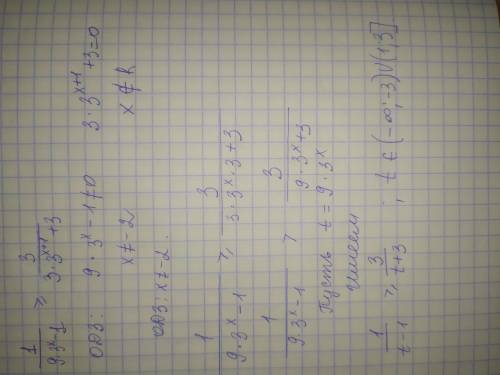 1/(9·3ˣ-1) ≥ 3/(3·3ˣ⁺¹+3)
ОДЗ: 9·3ˣ-1≠0 3·3ˣ⁺¹+3=0
x≠-2 x∉R
ОДЗ: x≠-2.
1/(9·3ˣ-1) ≥ 3/(3·3ˣ·3+3)
1/(9·3ˣ-1) ≥ 3/(9·3ˣ+3)
Пусть t=9·3ˣ
Имеем
1/(t-1) ≥ 3/(t+3) ; t∈(-∞;-3)∪(1,3]